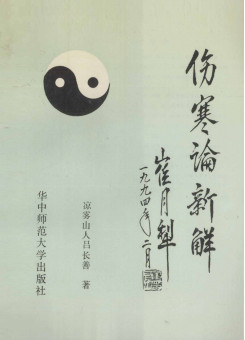 伤寒论新解
崔月犁
一九九四年二月
凉雾山人吕长善 著
华中师范大学出版社